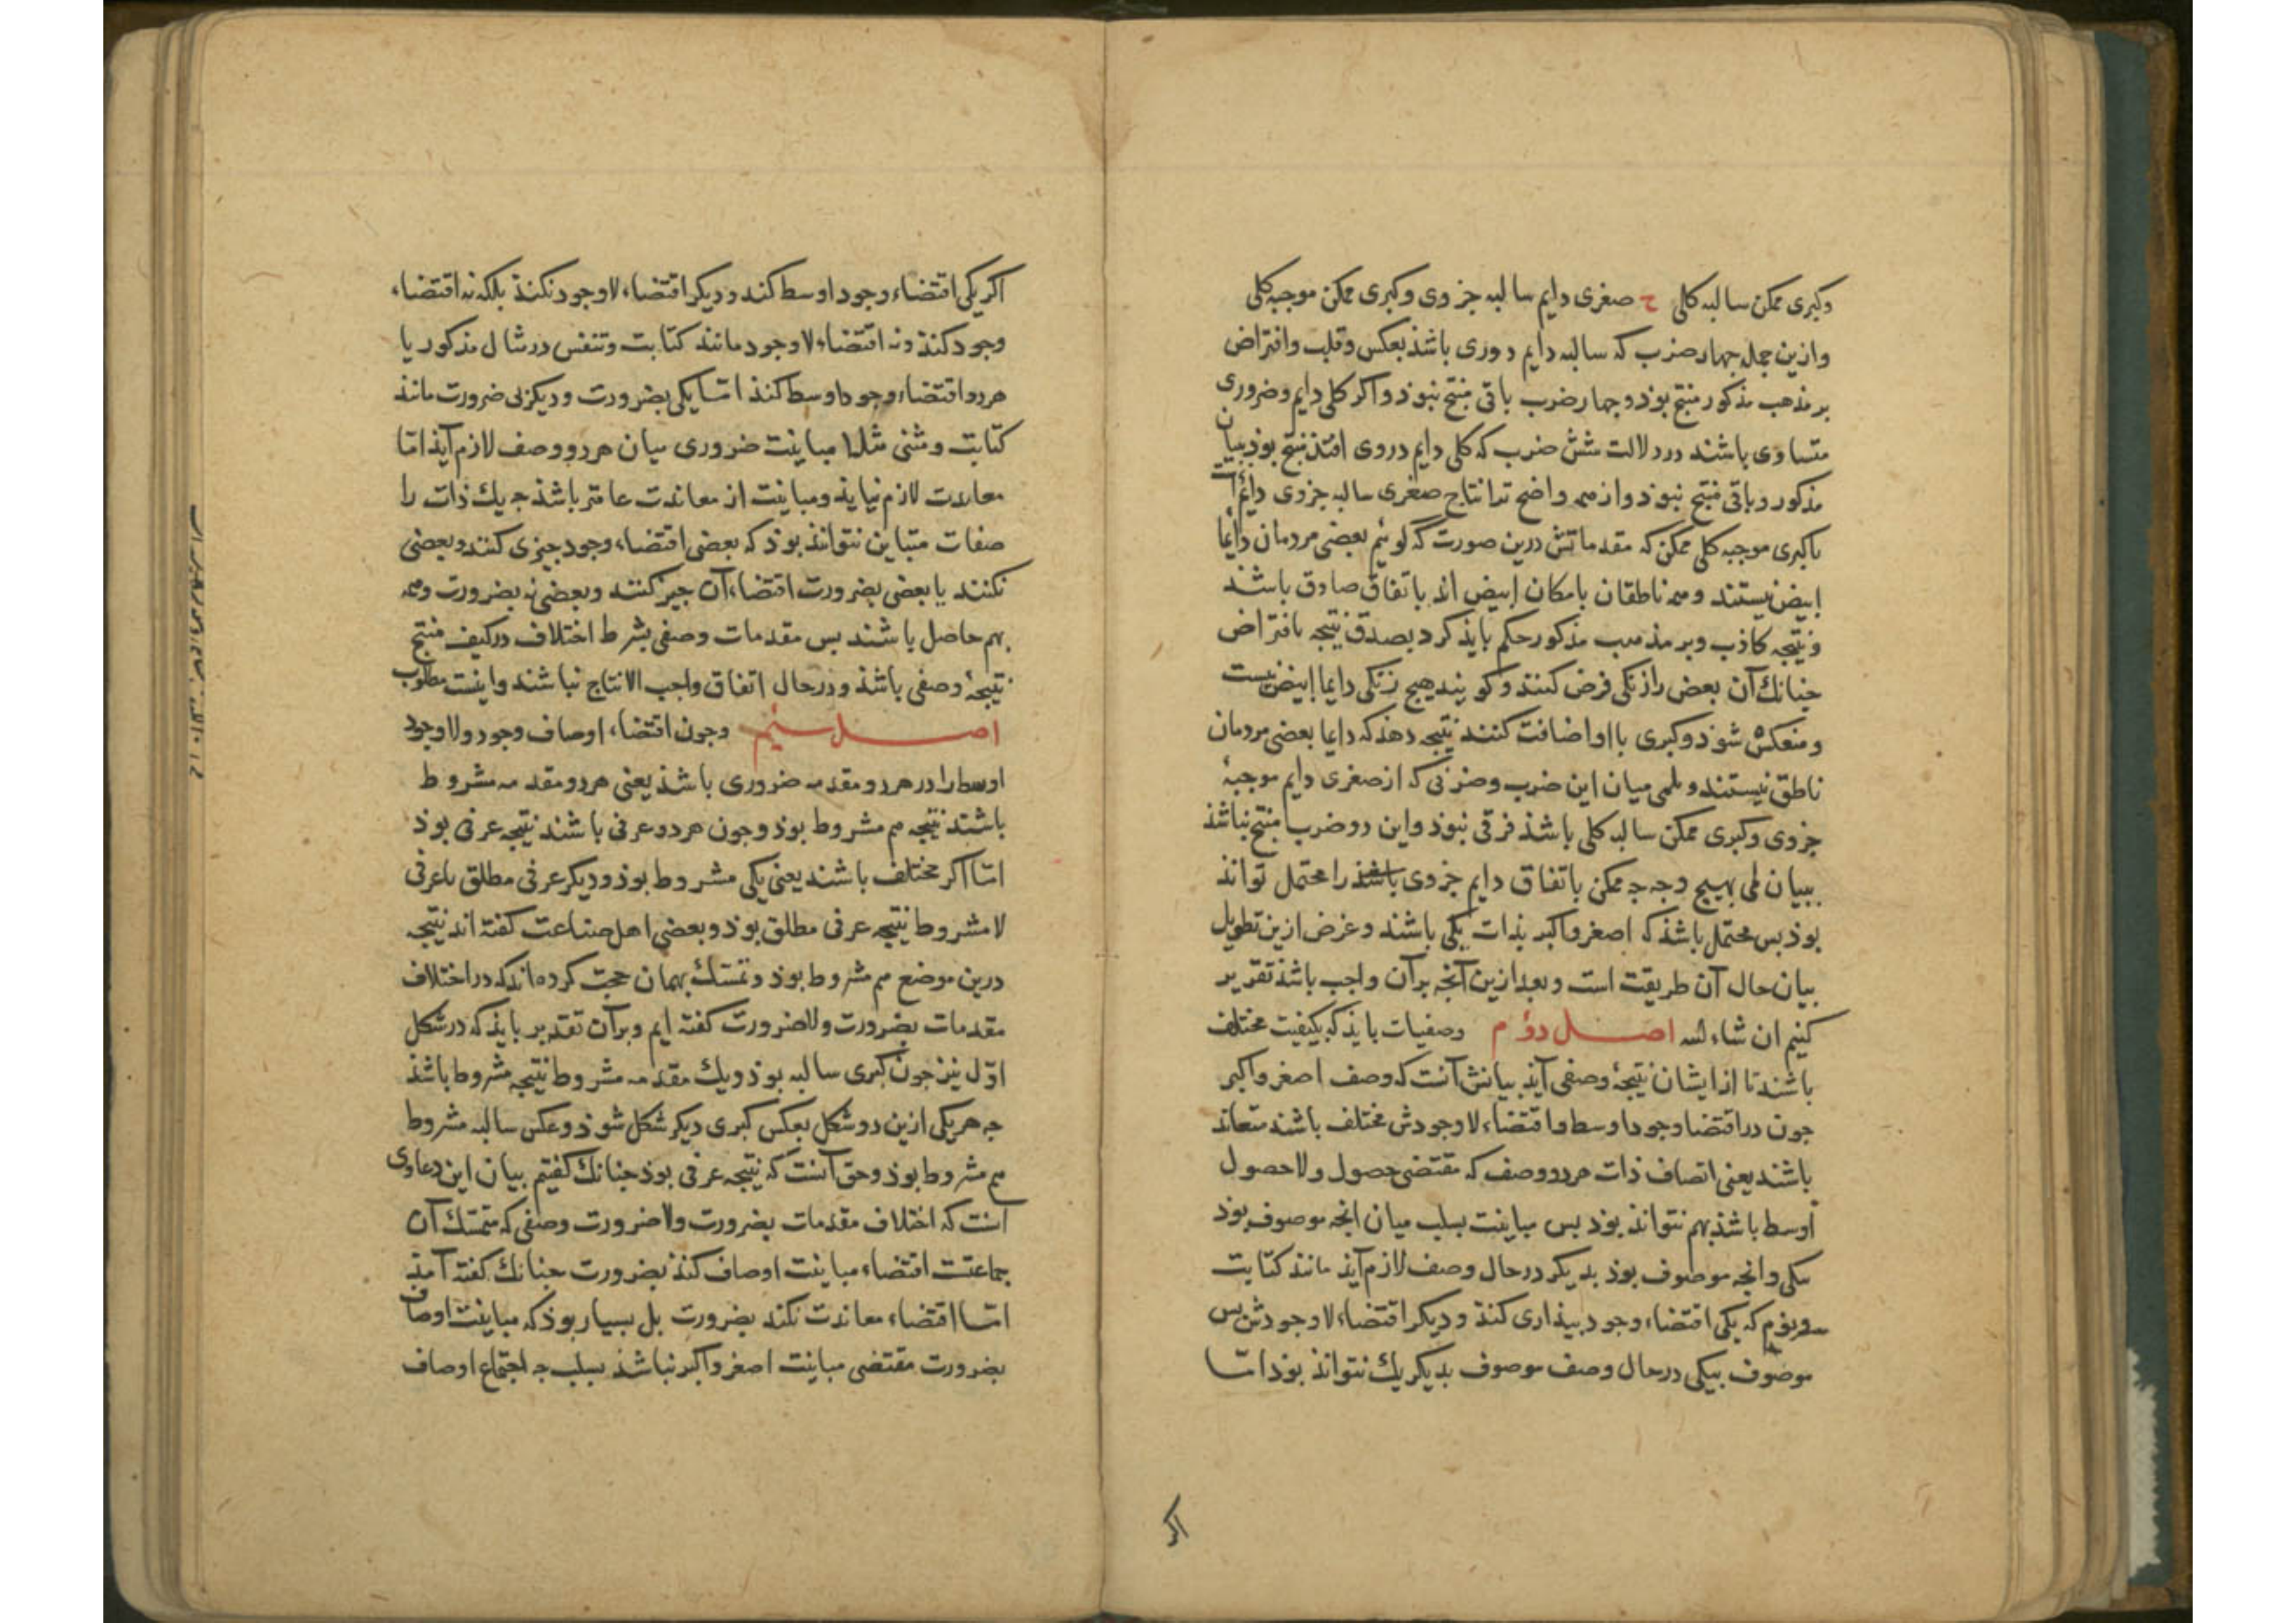 وکبری ممکن سالبه کلی ح صغری دایم سالبه جزوی وکبری ممکن موجبه کلی
وازین جمله جهار ضرب که سالبه دایم دروی باشذ بعکس وقلب وافتراض
بر مذهب مذکور منتج بوذ وجهار ضرب باقی منتج نبوذ واکر کلی دایم وضروری
متساوی باشند در دلالت شش ضرب که کلی دایم دروی افتذ منتج بوذ ببیان
مذکور وباقی منتج نبوذ وازهمه واضح تر انتاج صغری سالبه جزوی دایم است
باکبری موجبه کلی ممکن که مقدماتش درین صورت که کوئیم بعضی مردمان دایما
ابیض نیستند وهمه ناطقان بامکان ابیض اند باتفاق صادق باشند
ونتیجه کاذب وبر مذهب مذکور حکم بایذ کرد بصدق نتیجه بافتراض
جنانك آن بعض را زنکی فرض کنند وکویند هیج زنکی دایما ابیض نیست
ومنعکس شوذ وکبری بااو اضافت کنند نتیجه دهذ که دایما بعضی مردمان
ناطق نیستند و میان این ضرب وضربی که از صغری دایم موجبهٔ
جزوی وکبری ممکن سالبه کلی باشذ فرقی نبوذ واین دو ضرب منتج نباشذ
ببیان لمی بهیج وجه جه ممکن باتفاق دایم جزوی باشذ را محتمل تواند
بوذ بس محتمل باشذ که اصغر واکبر بذات یکی باشند وغرض ازین تطویل
بیان حال آن طریقت است وبعد ازین آنجه برآن واجب باشذ تقریر
کنیم ان شاء الله اصل دوم وصفیات بایذ که بکیفیت مختلف
باشند تا از ایشان نتیجهٔ وصفی آیذ بیانش آنست که وصف اصغر واکبر
جون در اقتضا وجود اوسط واقتضاء لاوجودش مختلف باشند متعاند
باشند یعنی اتصاف ذات هردو وصف که مقتضی حصول ولاحصول
اوسط باشذ بهم نتواند بوذ بس مباینت بسلب میان انجه موصوف بوذ
بیکی وانجه موصوف بوذ بدیکر درحال وصف لازم آیذ مانند کتابت
ونوم که یکی اقتضاء وجود بیذاری کنذ ودیکر اقتضاء لاوجودش بس
موصوف بیکی درحال وصف موصوف بدیکر یك نتواند بوذ اما
اکر
اکر یکی اقتضاء وجود اوسط کند ودیکر اقتضاء لاوجود نکند بلکه نه اقتضاء
وجود کند ونه اقتضاء لاوجود مانند کتابت وتنفس در مثال مذکور یا
هردو اقتضاء وجود اوسط کند اما یکی بضرورت ودیکر بی ضرورت مانند
کتابت ومشی مثلا مباینت ضروری میان هردو وصف لازم آیذ اما
معاندت لازم نیایذ ومباینت از معاندت عامتر باشذ جه یك ذات را
صفات متباین نتواند بوذ که بعضی اقتضاء وجود جیزی کنند وبعضی
نکنند یا بعضی بضرورت اقتضاء آن جیز کنند وبعضی نه بضرورت وهمه
بهم حاصل باشند بس مقدمات وصفی بشرط اختلاف درکیف منتج
نتیجهٔ وصفی باشذ ودرحال اتفاق واجب الانتاج نباشند واینست مطلوب
اصل سیم وجون اقتضاء اوصاف وجود ولاوجود
اوسط را در هردو مقدمه ضروری باشذ یعنی هردو مقدمه مشروط
باشند نتیجه هم مشروط بوذ وجون هردو عرفی باشند نتیجه عرفی بوذ
اما اکر مختلف باشند یعنی یکی مشروط بوذ ودیکر عرفی مطلق یا عرفی
لامشروط نتیجه عرفی مطلق بوذ وبعضی اهل صناعت کفته اند نتیجه
درین موضع هم مشروط بوذ وتمسك بهمان حجت کرده اند که در اختلاف
مقدمات بضرورت ولاضرورت کفته ایم وبرآن تقدیر بایذ که درشکل
اول نیز جون کبری سالبه بوذ ویك مقدمه مشروط نتیجه مشروط باشذ
جه هریکی ازین دو شکل بعکس کبری دیکر شکل شوذ وعکس سالبه مشروط
هم مشروط بوذ وحق آنست که نتیجه عرفی بوذ جنانك کفتیم بیان این دعاوی
آنست که اختلاف مقدمات بضرورت ولاضرورت وصفی که متمسك آن
جماعتست اقتضاء مباینت اوصاف کنذ بضرورت جنانك کفته آمذ
اما اقتضاء معاندت نکند بضرورت بل بسیار بوذ که مباینت اوصاف
بضرورت مقتضی مباینت اصغر واکبر نباشذ بسلب جه اجتماع اوصاف